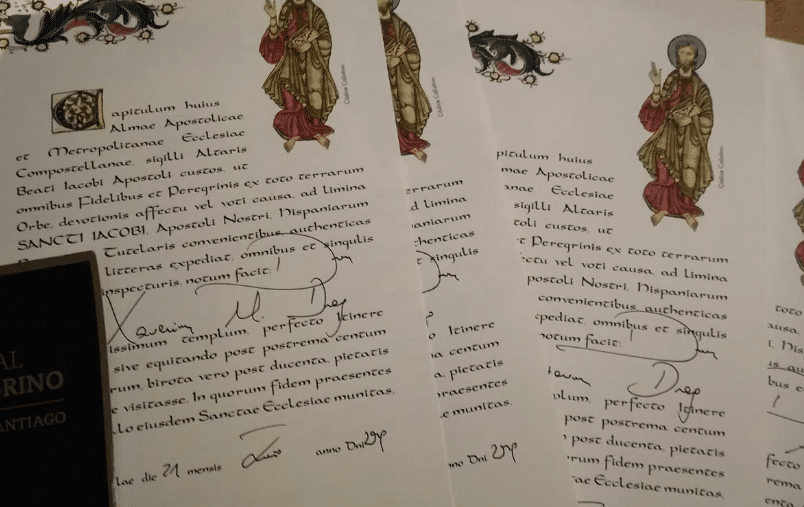 Capitulum huius
Almae Apostolicae
et Metropolitanae Ecclesiae
Compostellanae, sigilli Altaris
Beati Iacobi Apostoli custos, ut
omnibus Fidelibus et Peregrinis ex toto terrarum
Orbe, devotionis affectu vel voti causa, ad limina
SANCTI IACOBI, Apostoli Nostri, Hispaniarum
Tutelaris convenientibus, authenticas
litteras expediat, omnibus et singulis
inspecturis, notum facit:
issimum templum, perfecto Itinere
sive equitando post postrema centum
rum, birota vero post ducenta, pietatis
e visitasse. In quorum fidem praesentes
llo eiusdem Sanctae Ecclesiae munitas,
lae die 21 mensis anno Dni
Codex Calixtinus
AL
RINO
ANTIAGO
errarum
d limina
aniarum
henticas
singulis
o Itinere
a centum
, pietatis
raesentes
e munitas,
no Dni
pitulum huius
mae Apostolicae
anae Ecclesiae
sigilli Altaris
toli custos, ut
et Peregrinis ex toto terrarum
ectu vel voti causa, ad limina
postoli Nostri, Hispaniarum
convenientibus, authenticas
pediat, omnibus et singulis
notum facit:
plum, perfecto Itinere
post postrema centum
post ducenta, pietatis
orum fidem praesentes
tae Ecclesiae munitas,
Codex Calixtinus
toto
ausa,
i, His
bus e
fecto
rema